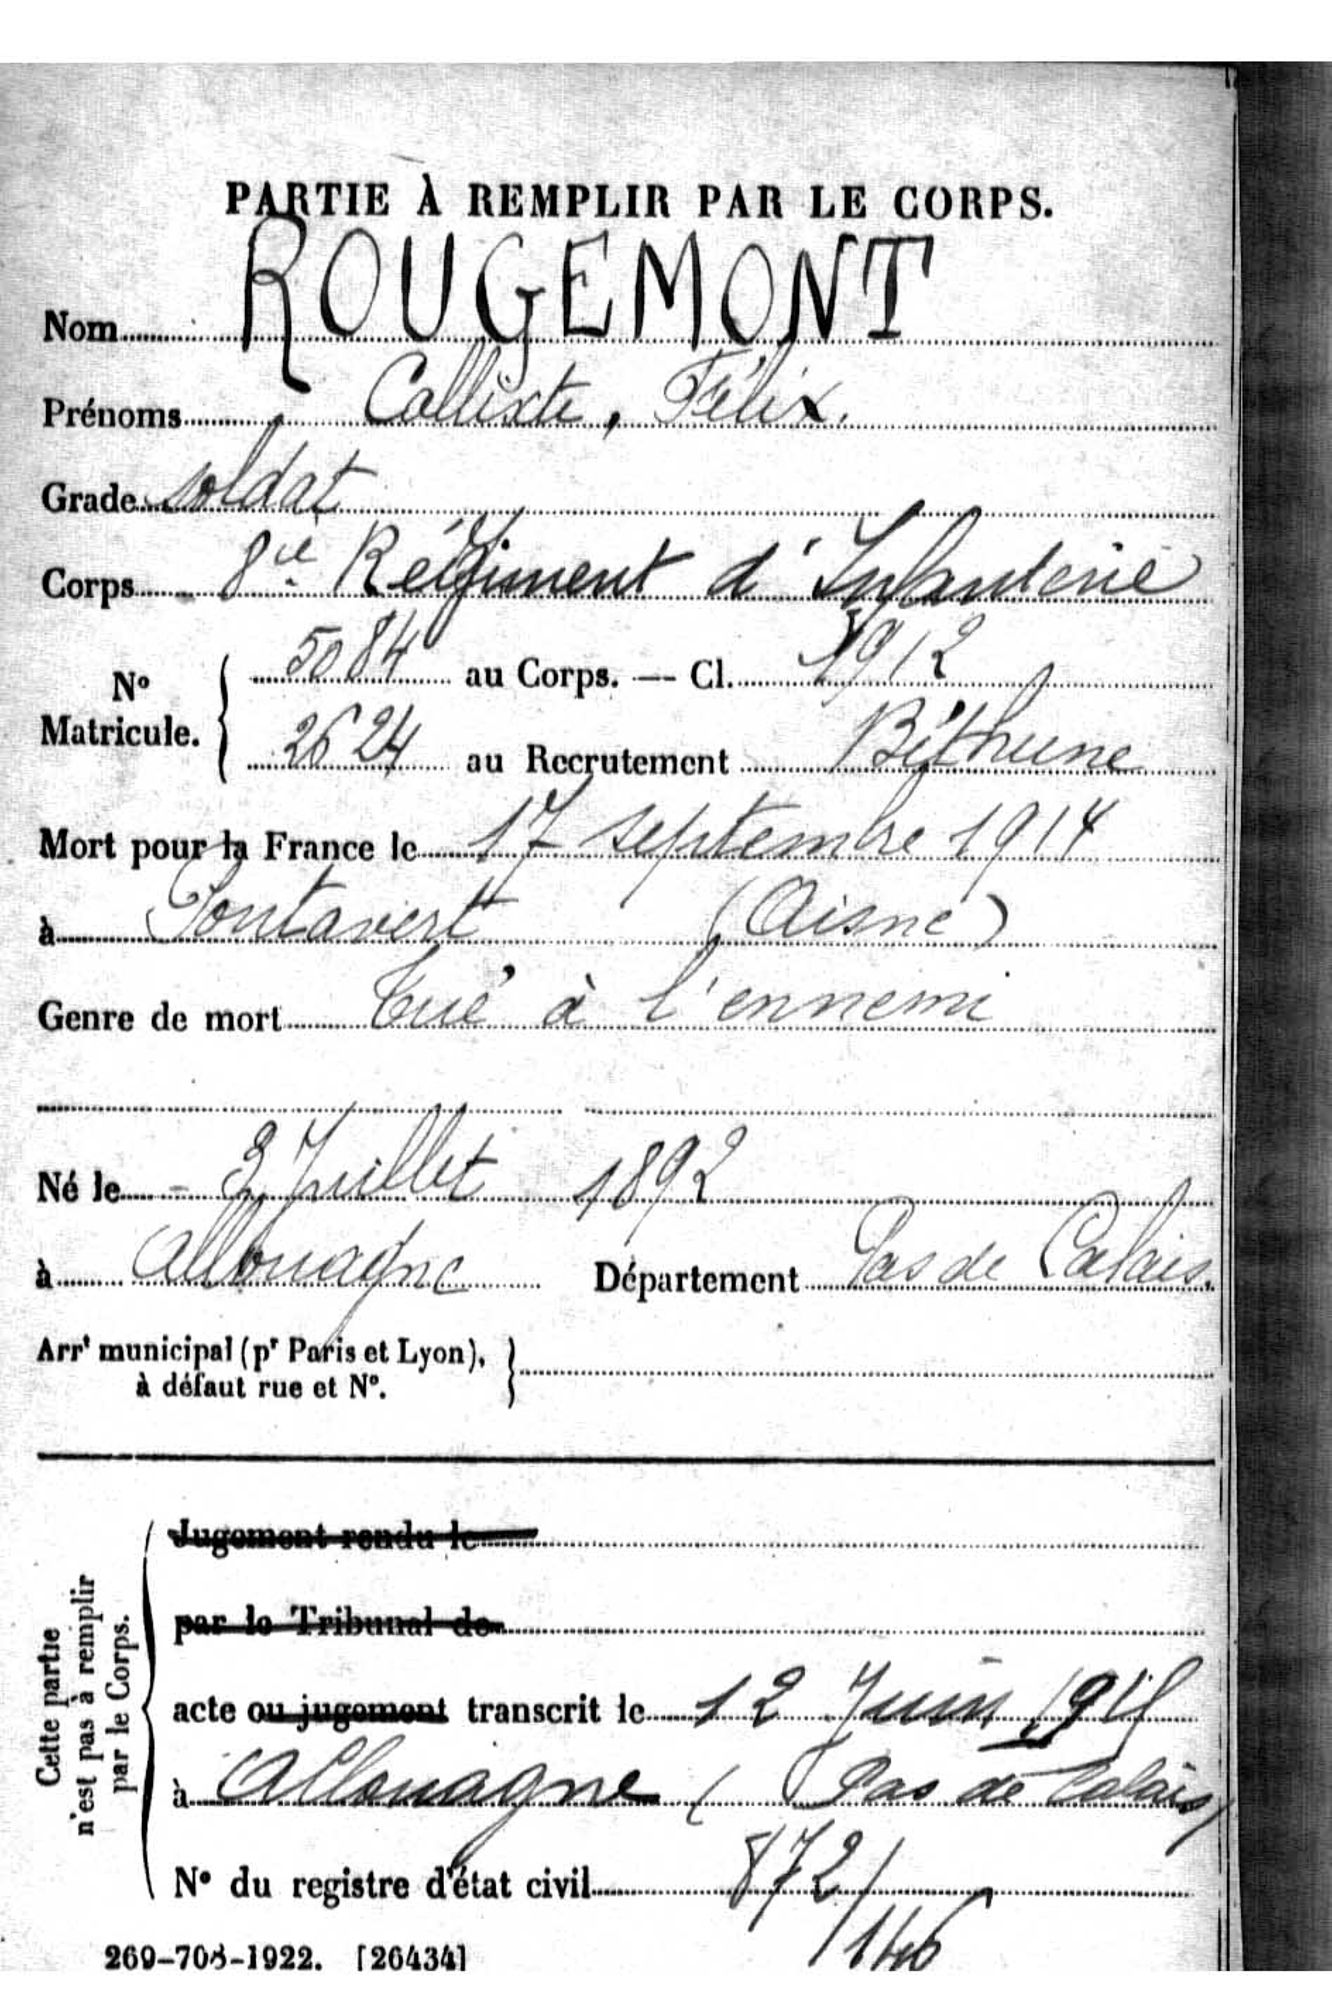 PARTIE À REMPLIR PAR LE CORPS.
Nom ROUGEMONT
Prénoms Callixte, Félix.
Grade soldat
Corps 8ie Régiment d'Infanterie
No Matricule. 5084 au Corps. — Cl. 1912
2624 au Recrutement Béthune
Mort pour la France le 17 septembre 1914
à Pontavert (Aisne)
Genre de mort tué à l'ennemi
Né le 3 Juillet 1892
à Allouagne Département Pas de Calais.
Arrt municipal (pr Paris et Lyon),
à défaut rue et No.
Cette partie
n'est pas à remplir
par le Corps.
Jugement rendu le
par le Tribunal de
acte ou jugement transcrit le 12 Juin
à Allouagne (Pas de Calais)
No du registre d'état civil 872/
146
269-708-1922. [26434]